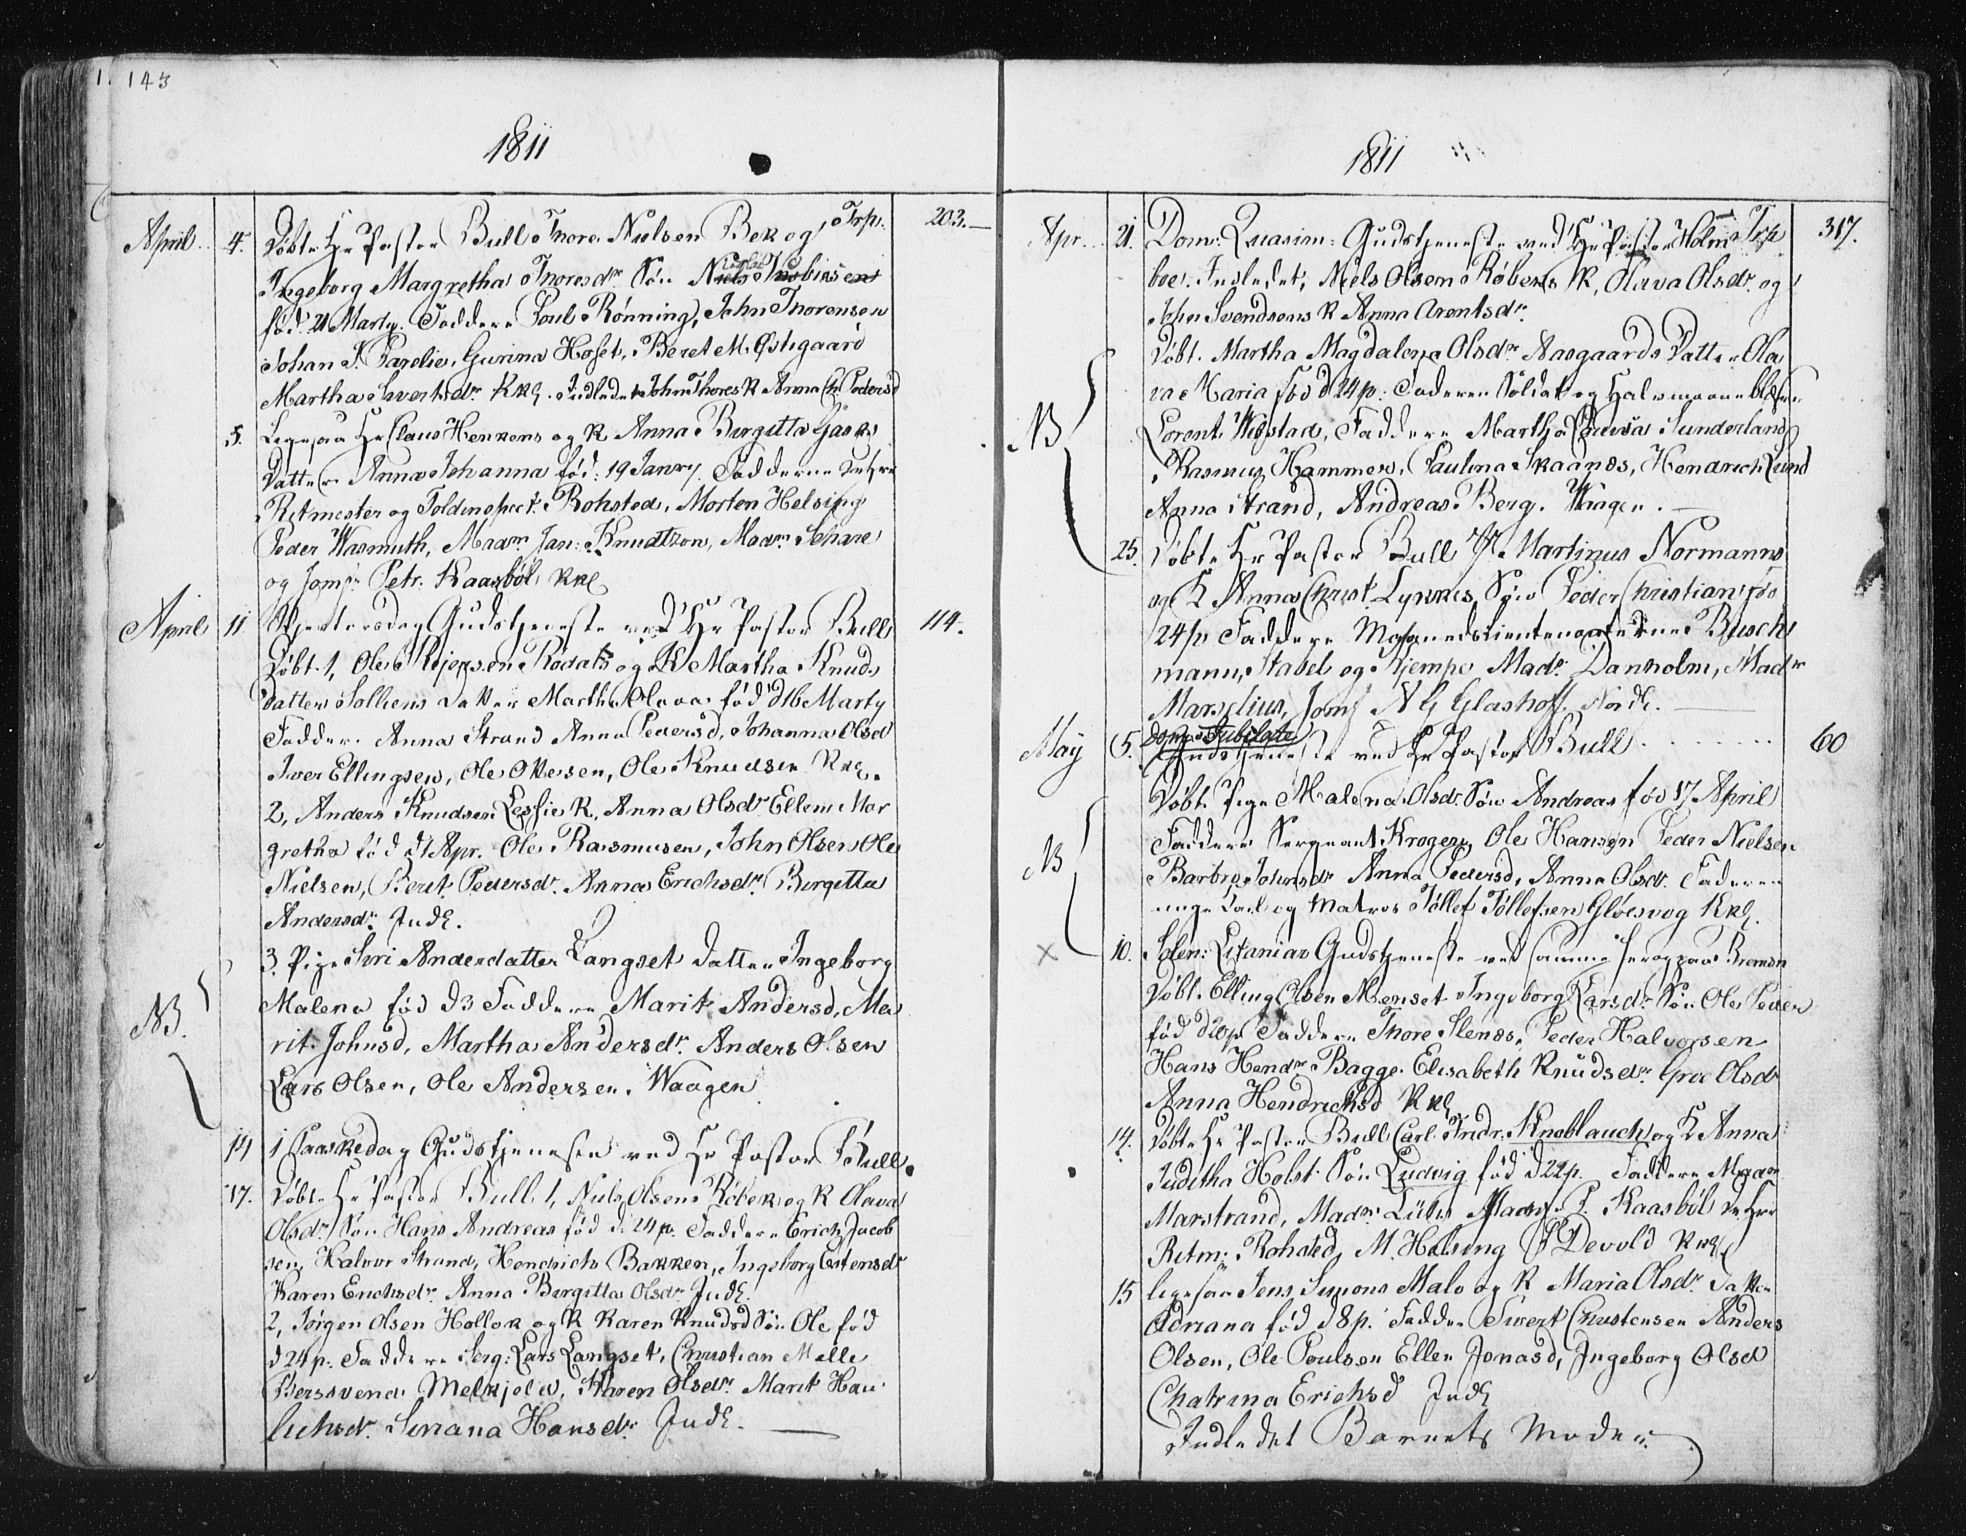 143
1811
April 4. Døbte Hr Pastor Bull Thore Nielsen Bek og Trp. 203.
Ingeborg Margretha Thoresdr Søn Niels Tnobias
fød 21 Marty. Faddere Poul Rønning, John Thorensen
Johan S. Parelie, Gurina Hoset, Beret M. Østigaard
Martha Sivertsdr Kkl. Indledet John Thores K Anna Ch: Pedersd
5. Ligesaa Hr Claus Henkens og K Anna Birgitta Gaas
Datter Anna Johanna fød: 19 Janry. Fadderne
Ritmester og Toldinspect. Rohsted, Morten Helsing
Peder Wasmuth, Madm Jan: Knudtzon, Madm Schare
og Jomf: Petr. Kaasbøl Kkl
April 11 Skjertorsdag Gudstjeneste ved Hr Pastor Bull 114.
Døbt 1, Ole Rødals og K Martha Knuds
datter Solliens Datter Martha Olava fød d 16 Marty
Faddere Anna Strand Anna Pedersd, Johanna Olsd
Iver Ellingsen, Ole Olsen, Ole Knudsen Kkl.
2, Anders Knudsen Lessie K. Anna Olsdr Ellen Mar
gretha fød d 1 Apr. Ole Rasmusen, John Olsen Ole
Nielsen, Beret Pedersdr. Anna Erichsdr Birgitta
Andersdr Indl.
NB. 3. Pige Siri Andersdatter Langset Datter Ingeborg
Malena fød d 3 Faddere Marit Andersd, Ma
rit Johnsd, Martha Andersdr. Anders Olsen
Lars Olsen, Ole Andersen. Waagen
14 1 Paaskedag Gudstjenesten ved Hr Pastor Bull.
17. Døbte Hr Pastor Bull 1, Niels Olsen Røbek og K Olava
Olsdr Søn Hans Andreas fød d. 24 p. Faddere Erich Jacob
sen, Halvor Strand, Hendrich Bakken, Ingeborg Estensdr
Karen Erichsdr. Anna Birgitta Olsdr Indl.
2, Jørgen Olsen Hollok og K Karen Knudsd Søn Ole fød
d 24 p. Faddere Serg: Lars Langset, Christian Melle
Berssvend Melkjeld, Karen Olsdr. Marit Hau
lichsdr. Seriana Hansdr: Indl.
1811
Apr. 21. Dom: Quasim: Gudstjeneste ved Hr Pastor Holm Trp 317.
boe. Indledet, Niels Olsen Røbeks K, Olava Olsdr. og
Svendsens K Anna Arentsdr.
NB Døbt. Martha Magdalena Olsdr Aasgaards Datter Ola
va Maria fød d 24 p: Faderen Soldat og
Lorents Wigstad, Faddere Martha Lovisa Sunderland
Rasmus Hammer, Paulina Skaanes, Hendrich Lund
Anna Strand, Andreas Berg. Waagen.
25. Døbte Hr Pastor Bull Hr Martinus Normanns
og K Anna Christ Lynnes Søn Peder Christian fød
24 p Faddere Maanedslieutenanterne Busch
mann, Stabel og Kjempe Madr. Danholm, Madr
Marselius, Jomf N G Glashoff. Indl.
May 5. Dom: Jubilate Gudstjeneste ved Hr Pastor Bull 60
NB Døbt Pige Malena Olsdr. Søn Andreas fød 17 April
Faddere Sergeant Krogen, Ole Hansen Peder Nielsen
Barbro Johnsdr Anna Pedersd, Anna Olsdr. Faderen
unge Karl og Matros Tøllef Tøllefsen Gløesvog Kkl.
x 10. Solen: Litaniar Gudstjeneste ved samme Bremsn
Døbt. Elling Olsen Menset Ingeborg Larsdr Søn Ole Peder
fød d 20 p Faddere Thore Slenes, Peder Halvorsen
Hans Hendr Bagge. Elisabeth Knudsdr Gro Olsdr
Anna Hendrichsd Kkl.
14. Døbte Hr Pastor Bull Carl Fridr. Knoblauch og K Anna
Juditha Holst Søn Ludvig fød d 22 p. Faddere Madm
Marstrand, Madm Lühr Madm P. Kaasbøl De Hrr
Ritm: Rohsted, M. Helsing P Devold Kkl
15 Ligesaa Jens Simons Malo og K Maria Olsdr. Datter
Adriana fød d 8 p. Faddere Sivert Christensen Anders
Olsen, Ole Poulsen Ellen Jonasd, Ingeborg Olsd
Chatrina Erichsd Indl
Indledet Barnets Moder.